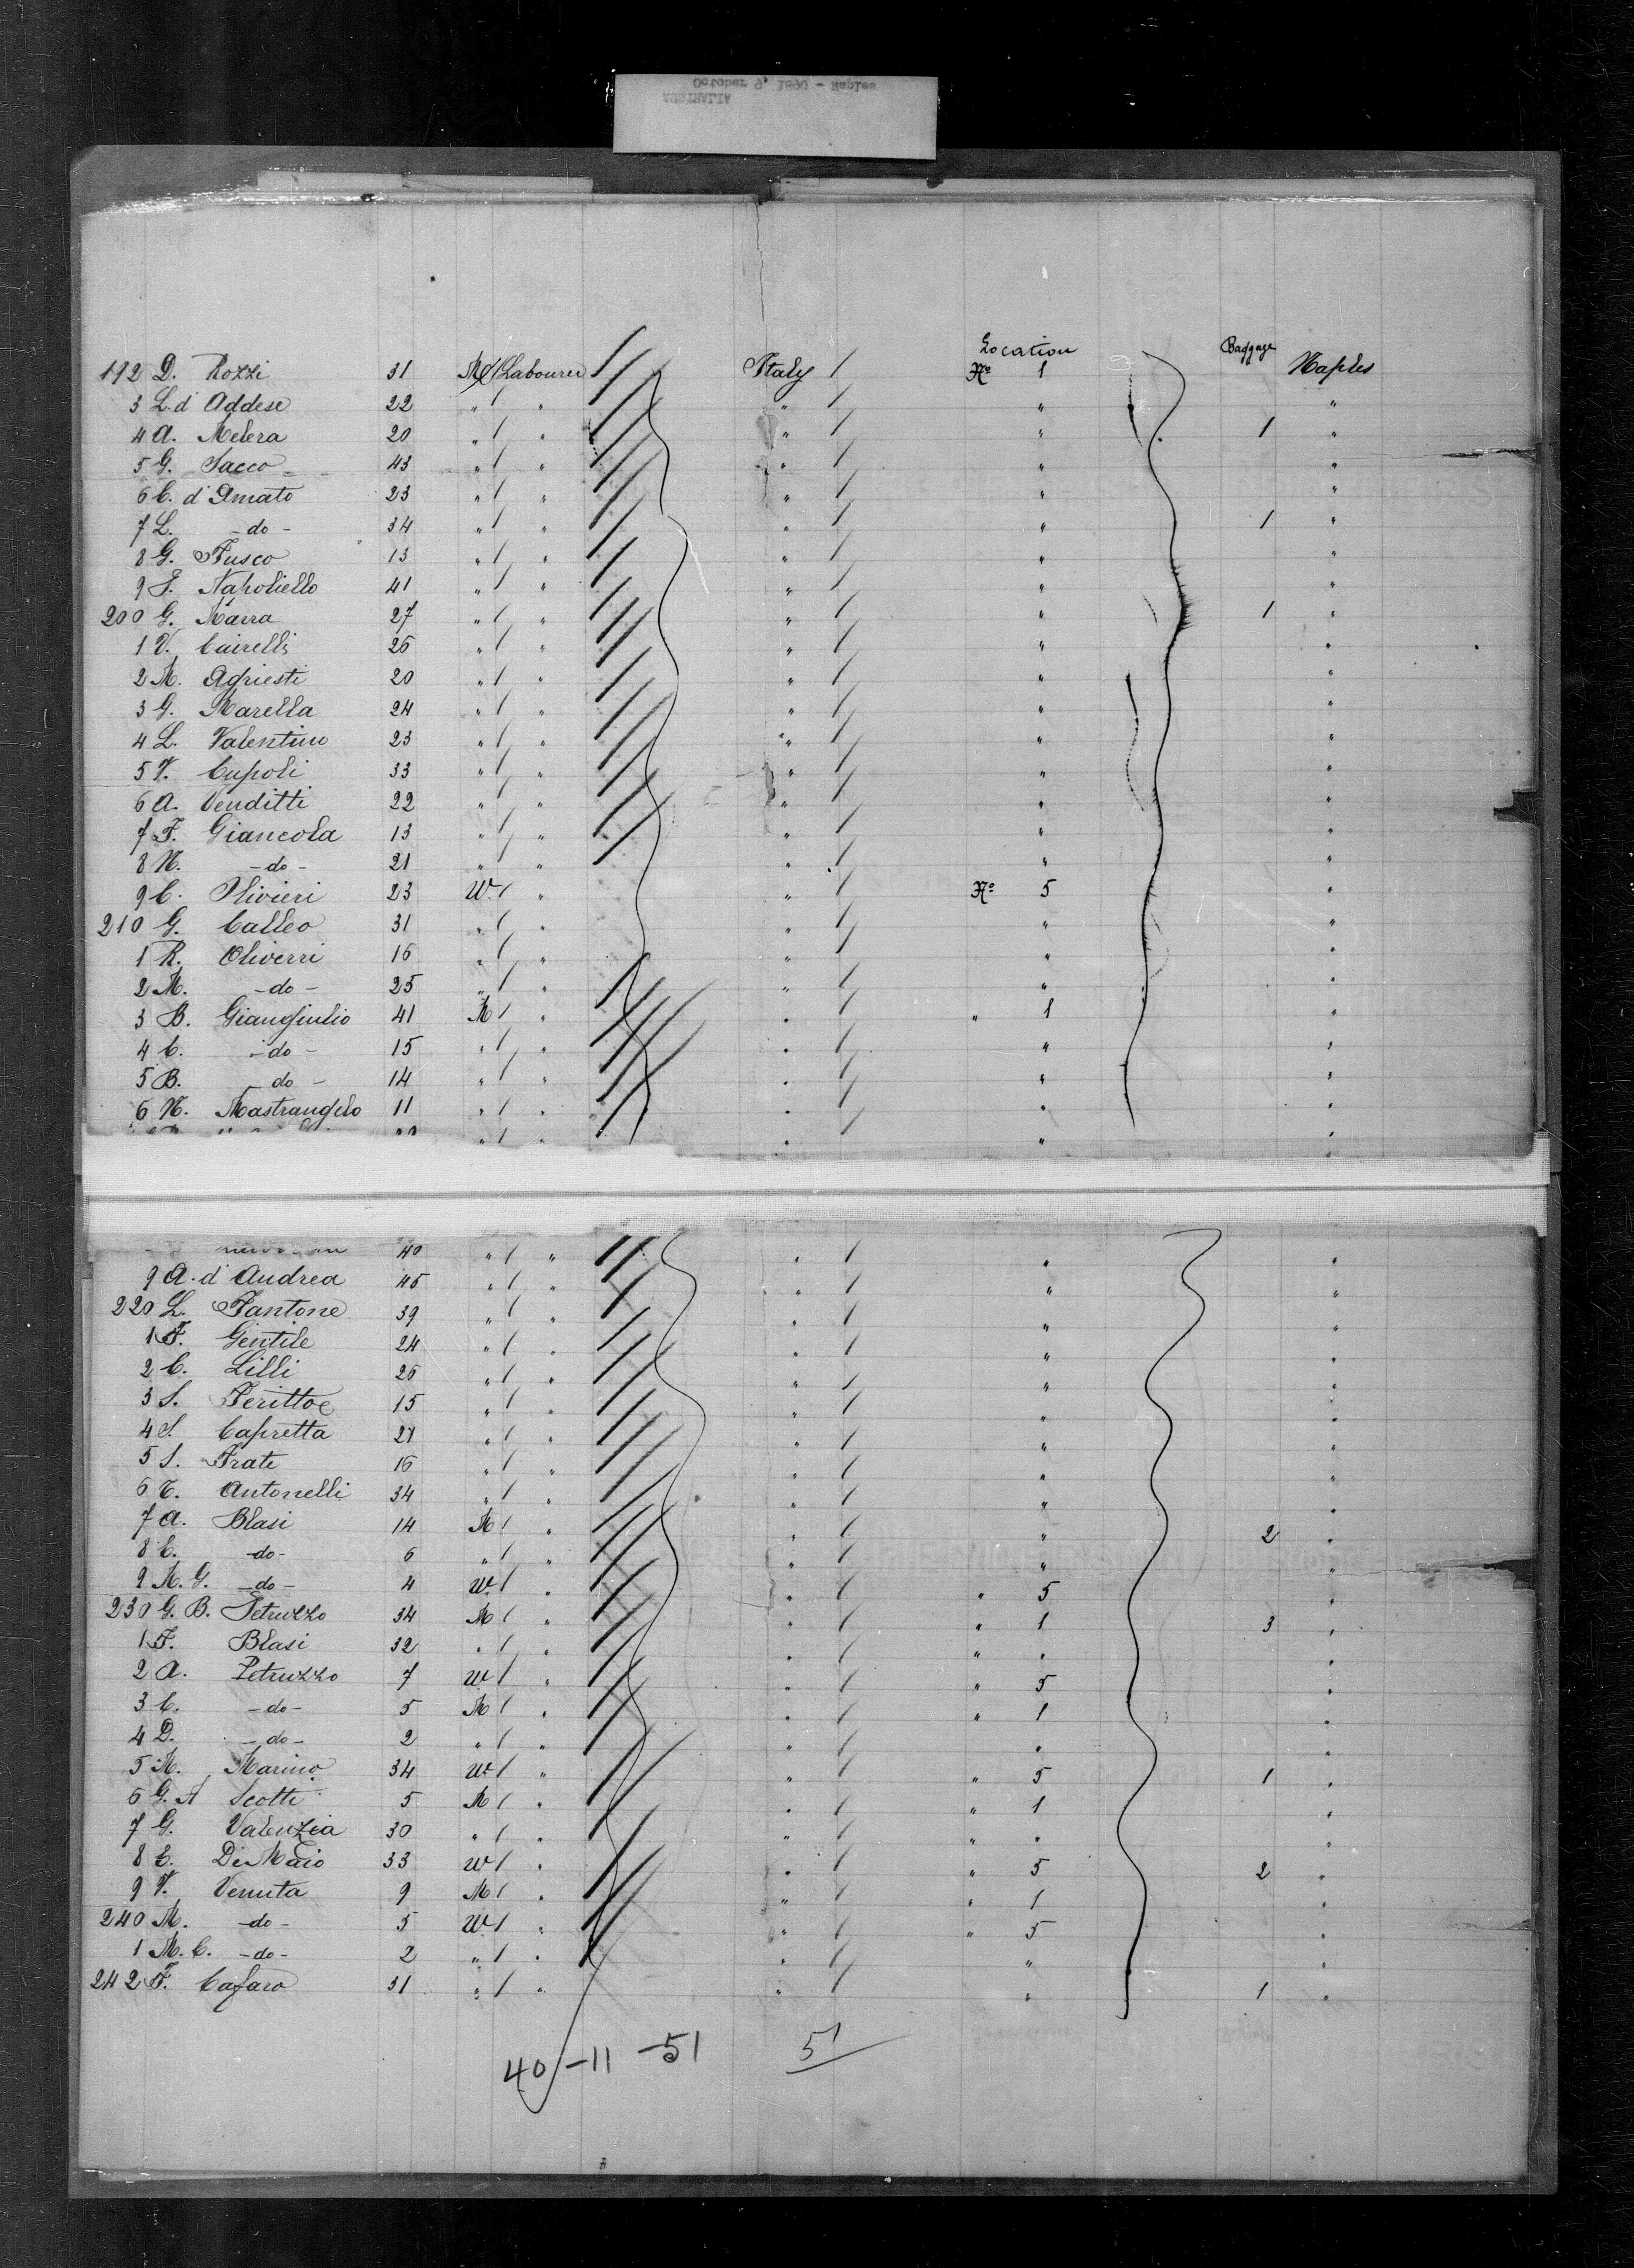 October 9, 1890 - Naples
AUSTRALIA
Location Baggage
192 D. Rozzi 31 M/ Labourer Italy / No 1 Naples
3 L. d' Addese 22 " / " " / " "
4 A. Melera 20 " / " " / " 1 "
5 G. Sacco 43 " / " " / " "
6 C. d'Amato 23 " / " " / " "
7 L. -do- 34 " / " " / " 1 "
8 G. Fusco 13 " / " " / " "
9 F. Napoliello 41 " / " " / " "
200 G. Marra 27 " / " " / " 1 "
1 V. Cairelli 26 " / " " / " "
2 M. Agriesti 20 " / " " / " "
3 G. Marella 24 " / " " / " "
4 L. Valentino 23 " / " " / " "
5 V. Cupoli 33 " / " " / " "
6 A. Venditti 22 " / " " / " "
7 F. Giancola 13 " / " " / " "
8 N. -do- 21 " / " " / " "
9 C. Olivieri 23 W. / " " / No 5 "
210 G. Calleo 31 " / " " / " "
1 R. Oliverri 16 " / " " / " "
2 M. -do- 25 " / " " / " "
3 B. Giangiulio 41 M / " " / " 1 "
4 C. -do- 15 " / " " / " "
5 B. -do- 14 " / " " / " "
6 N. Mastrangelo 11 " / " " / " "
" / " " " "
40 " / " " / " "
9 A. d' Andrea 45 " / " " / " "
220 L. Fantone 39 " / " " / " "
1 F. Gentile 24 " / " " / " "
2 C. Lilli 26 " / " " / " "
3 S. 15 " / " " / " "
4 S. Capretta 21 " / " " / " "
5 S. Frate 16 " / " " / " "
6 T. Antonelli 34 " / " " / " "
7 A. Blasi 14 M / " " / " 2 "
8 C. -do- 6 " / " " / " "
9 M. G. -do- 4 W. / " " / " 5 "
230 G. B. Petruzzo 34 M / " " / " 1 3 "
1 F. Blasi 32 " / " " / " " "
2 A. Petruzzo 7 W / " " / " 5 "
3 C. -do- 5 M / " " / " 1 "
4 D. -do- 2 " / " " / " "
5 M. Marino 34 W / " " / " 5 1 "
6 G. A Scotti 5 M / " " / " 1 "
7 G. Valenzia 30 " / " " / " " "
8 C. Di Maio 33 W / " " / " 5 2 "
9 V. Venuta 9 M / " " / " 1 "
240 M. -do- 5 W / " " / " 5 "
1 M. C. -do- 2 " / " " / " "
242 F. Cafaro 31 " / " " / " 1 "
40 - 11 - 51 51